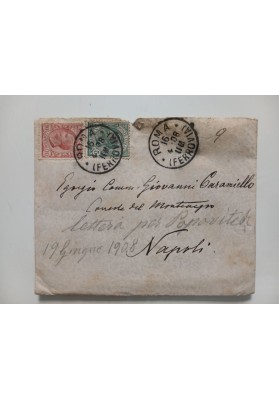 ROMA (FERROVIA)
ROMA (FERROVIA)
9
Egregio Comm. Giovanni Caramiello
Console del Montenegro
lettera per Popovitch
19 Giugno 1908
Napoli